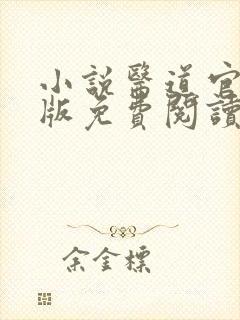 小說醫道官
版免費閱讀
余金標